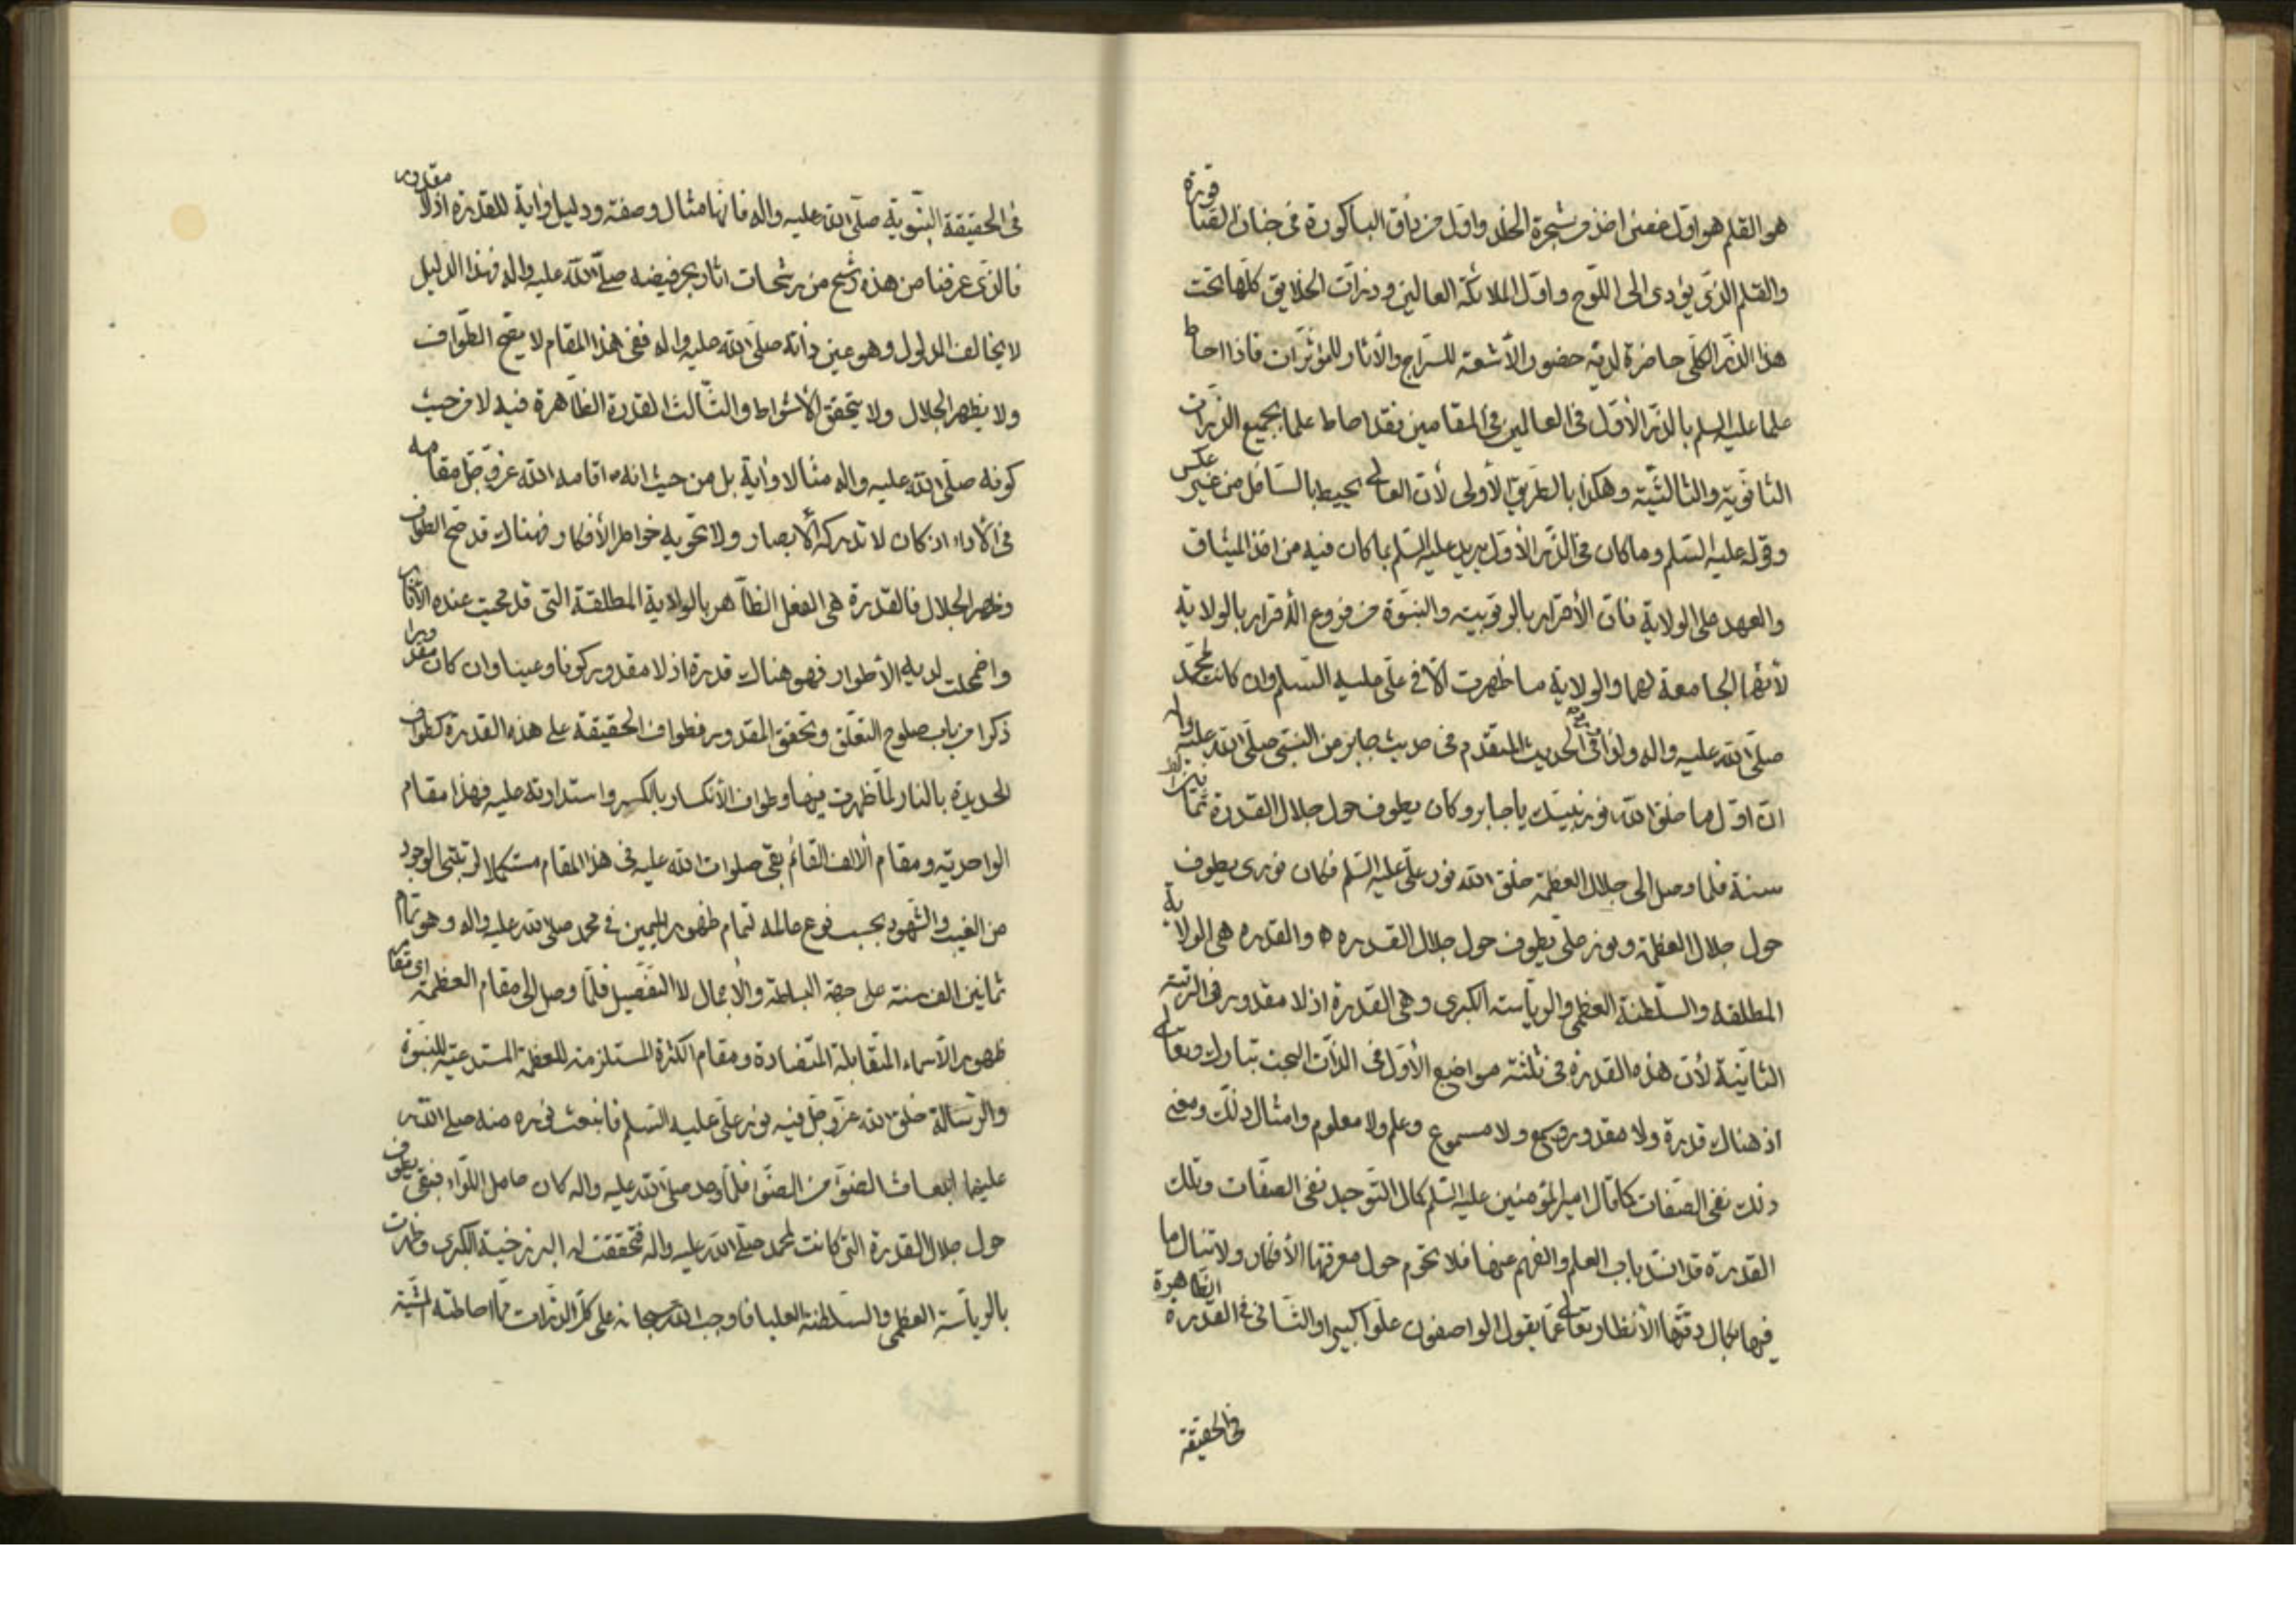 هو القلم هو اول غصن اخذ من شجرة الخلد واول من ذاق الباكورة فى جنان الصاقورة
والقلم الذى يؤدى الى اللوح واول الملائكة العالين وذرات الخلايق كلها تحت
هذا الذر الكلى حاضرة لديه حضور الأشعة للسراج والأثار للمؤثرات فاذا احاط
علما عليه السلم بالذر الأول فى العالمين فى المقامين فقد احاط علما بجميع الذرات
الثانوية والثالثية وهكذا بالطريق الأولى لأن العالى يحيط بالسافل من غير عكس
وقوله عليه السلم وما كان فى الذر الأول يريد عليه السلم بما كان فيه من اخذ الميثاق
والعهد على الولاية فان الأقرار بالربوبية والنبوة من فروع الأقرار بالولاية
لأنها الجامعة لهما والولاية ما ظهرت الا فى على عليه السلم وان كانت لمحمد
صلى الله عليه واله ولذا فى الحديث المتقدم فى حديث جابر من النبى صلى الله عليه واله
ان اول ما خلق الله نور نبيك يا جابر وكان يطوف حول جلال القدرة ثمانين الف
سنة فلما وصل الى جلال العظمة خلق الله نور على عليه السلم فكان نورى يطوف
حول جلال العظمة ونور على يطوف حول جلال القدرة ه والقدرة هى الولاية
المطلقة والسلطنة العظمى والرياسة الكبرى وهى القدرة اذ لا مقدور فى الرتبة
الثانية لأن هذه القدرة فى ثلثة مواضع الأول فى الذات البحت تبارك وتعالى
اذ هناك قدرة ولا مقدور وسمع ولا مسموع وعلم ولا معلوم وامثال ذلك ومعنى
ذلك نفى الصفات كما قال امير المؤمنين عليه السلم كمال التوحيد نفى الصفات وتلك
القدرة قد انسد باب العلم والفهم عنها فلا تحوم حول معرفتها الأفكار ولا تنال ما
فيها بكمال دقتها الأنظار وتعالى عما يقول الواصفون علوا كبيرا والثانى فى القدرة الظاهرة
فى الحقيقة
فى الحقيقة النبوية صلى الله عليه واله فانها مثال وصفة ودليل واية للقدرة اذ لا مقدور
فالذى عرفنا من هذه رشح من رشحات اثار بحر فيضه صلى الله عليه واله وهذا الدليل
لا يخالف المدلول وهو عين ذاته صلى الله عليه واله ففى هذا المقام لا يصح الطواف
ولا يظهر الجلال ولا يتحقق الأشواط والثالث القدرة الظاهرة فيه لا من حيث
كونه صلى الله عليه واله مثالا واية بل من حيث انه اقامه الله عز وجل مقامه
فى الأداء اذ كان لا تدركه الأبصار ولا تحويه خواطر الأفكار فهناك قد صح الطواف
وظهر الجلال فالقدرة هى الفعل الظاهر بالولاية المطلقة التى قد محيت عنده الأثار
واضمحلت لديه الأطوار فهو هناك قدرة اذ لا مقدور كونا وعينا وان كان مقدورا
ذكرا من باب صلوح التعلق وتحقق المقدور فطواف الحقيقة على هذه القدرة كطواف
الحديدة بالنار لما ظهرت فيها وطواف الأنكسار بالكسر واستدارته عليه فهذا مقام
الواحدية ومقام الألف القائم بقى صلوات الله عليه فى هذا المقام مستكملا لرتبتى الوجود
من الغيب والشهود بحسب نوع عالمه لتمام ظهور الميمين فى محمد صلى الله عليه واله وهو تمام
ثمانين الف سنة على جهة البساطة والأجمال لا التفصيل فلما وصل الى مقام العظمة اى مقام
ظهور الأسماء المتقابلة المتضادة ومقام الكثرة المستلزمة للعظمة المستدعية للنبوة
والرسالة خلق الله عز وجل فيه نور على عليه السلم فانبعث نوره منه صلى الله
عليهما انبعاث الضوء من الضوء فلما وجد صلى الله عليه واله كان حامل اللواء فبقى يطوف
حول جلال القدرة التى كانت لمحمد صلى الله عليه واله فتحققت له البرزخية الكبرى وظهرت
بالرياسة العظمى والسلطنة العليا فاوجب الله سبحانه على كل الذرات مما احاطته المشية